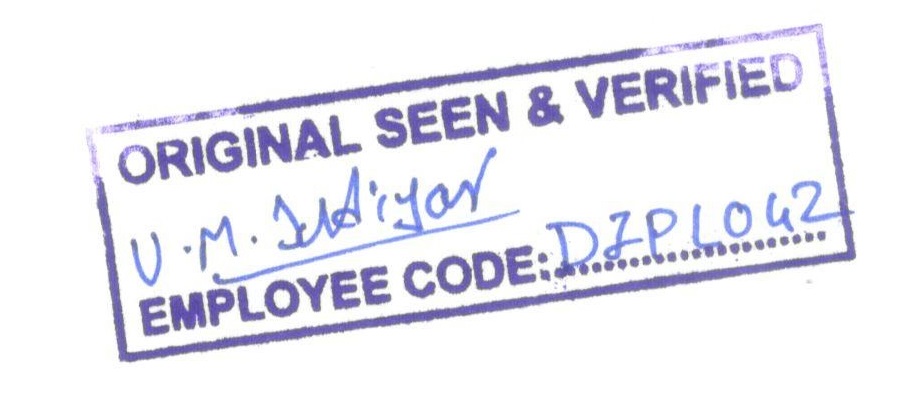 ORIGINAL SEEN & VERIFIED
U.M.
EMPLOYEE CODE: DIPL042